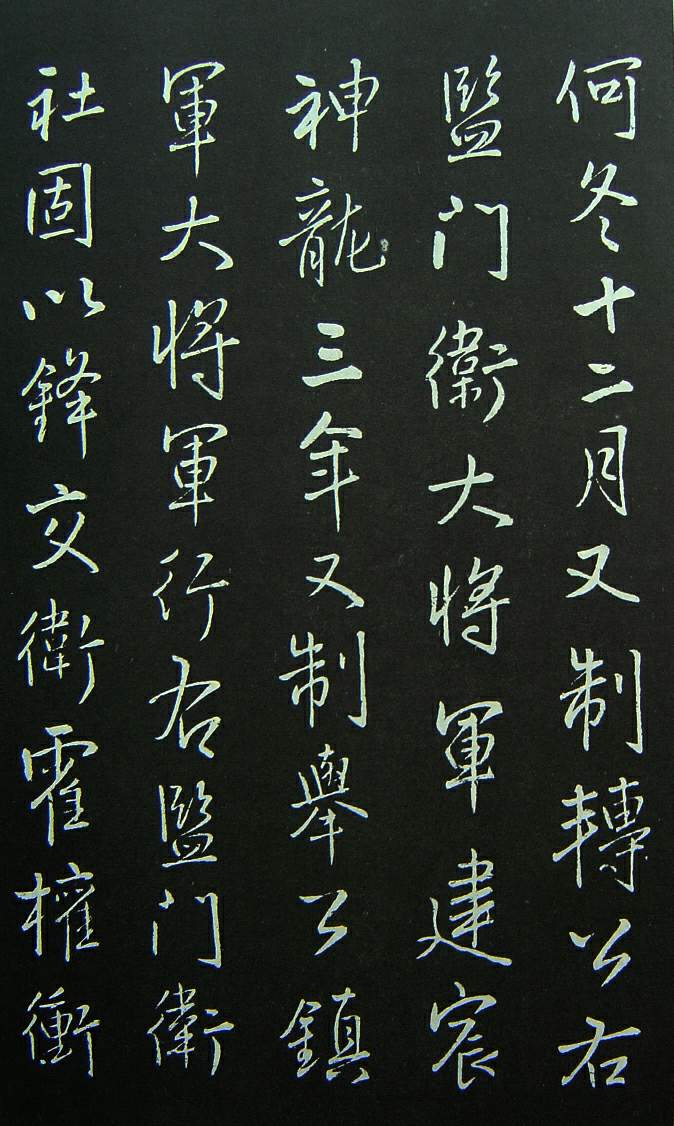 何冬十二月又制轉公右
監門衛大將軍建宸
神龍三年又制舉公鎮
軍大將軍行右監門衛
社固以鋒交衛霍權衝